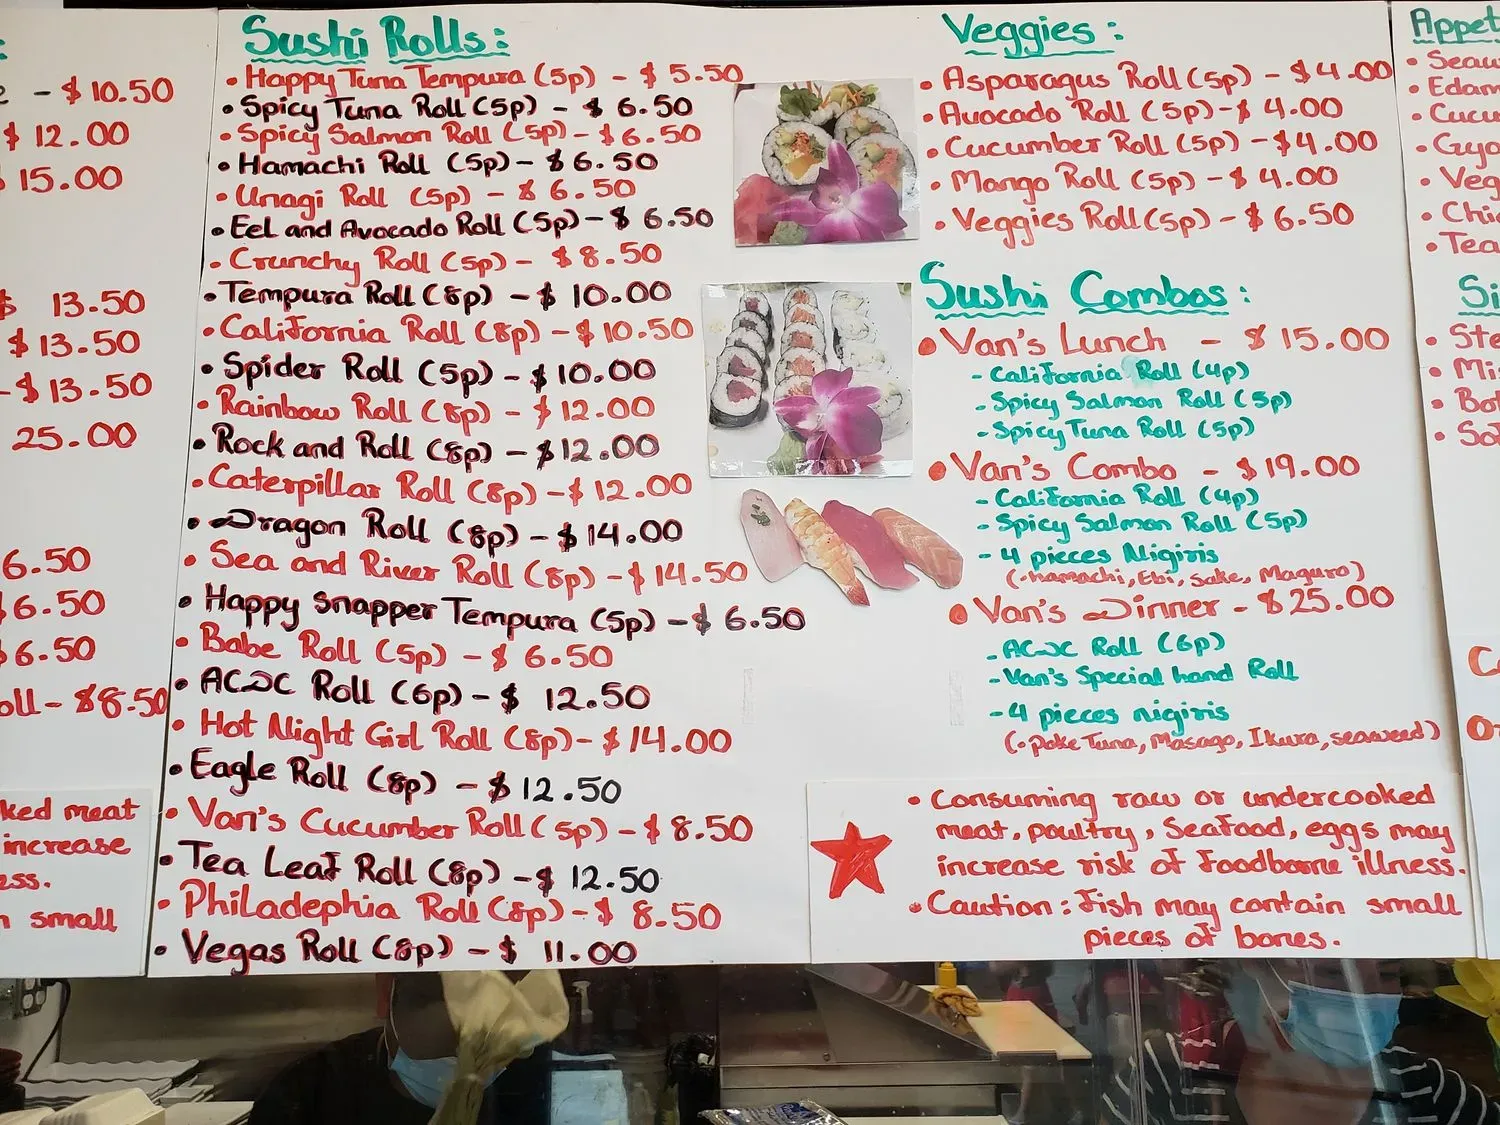 :
- $10.50
$12.00
$15.00
$13.50
$13.50
-$13.50
25.00
6.50
$6.50
$6.50
oll - $8.50
ked meat
increase
ess.
small
Sushi Rolls:
• Happy Tuna Tempura (5p) - $5.50
• Spicy Tuna Roll (5p) - $6.50
• Spicy Salmon Roll (5p) - $6.50
• Hamachi Roll (5p) - $6.50
• Unagi Roll (5p) - $6.50
• Eel and Avocado Roll (5p) - $6.50
• Crunchy Roll (5p) - $8.50
• Tempura Roll (8p) - $10.00
• California Roll (8p) - $10.50
• Spider Roll (5p) - $10.00
• Rainbow Roll (8p) - $12.00
• Rock and Roll (8p) - $12.00
• Caterpillar Roll (8p) - $12.00
• Dragon Roll (8p) - $14.00
• Sea and River Roll (8p) - $14.50
• Happy Snapper Tempura (5p) - $6.50
• Babe Roll (5p) - $6.50
• ACDC Roll (6p) - $12.50
• Hot Night Girl Roll (8p) - $14.00
• Eagle Roll (8p) - $12.50
• Van's Cucumber Roll (5p) - $8.50
• Tea Leaf Roll (8p) - $12.50
• Philadephia Roll (8p) - $8.50
• Vegas Roll (8p) - $11.00
Veggies:
• Asparagus Roll (5p) - $4.00
• Avocado Roll (5p) - $4.00
• Cucumber Roll (5p) - $4.00
• Mango Roll (5p) - $4.00
• Veggies Roll (5p) - $6.50
Sushi Combos:
• Van's Lunch - $15.00
- California Roll (4p)
- Spicy Salmon Roll (5p)
- Spicy Tuna Roll (5p)
• Van's Combo - $19.00
- California Roll (4p)
- Spicy Salmon Roll (5p)
- 4 pieces Nigiris
(• hamachi, Ebi, Sake, Maguro)
• Van's Dinner - $25.00
- ACDC Roll (6p)
- Van's Special hand Roll
- 4 pieces nigiris
(• Poke Tuna, Masago, Ikura, seaweed)
• Consuming raw or undercooked
meat, poultry, Seafood, eggs may
increase risk of foodborne illness.
• Caution: Fish may contain small
pieces of bones.
Appet
• Seaw
• Edam
• Cucu
• Gyo
• Veg
• Chi
• Tea
Si
• Ste
• Mi
• Bot
• So
C
O